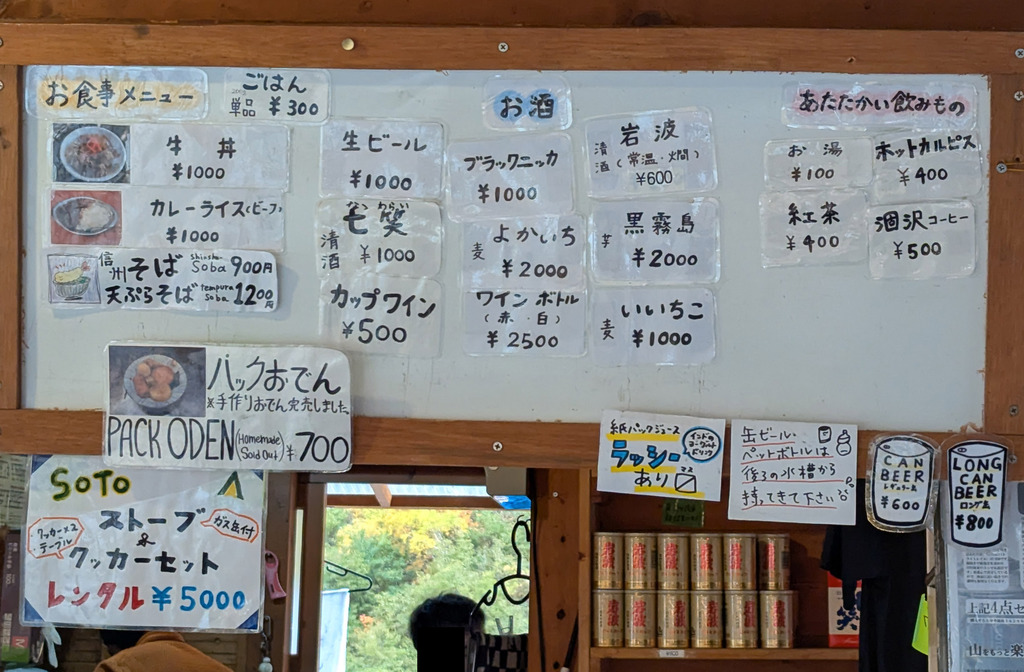 お食事メニュー
ごはん
単品 ¥300
牛丼
¥1000
カレーライス(ビーフ)
¥1000
信州そば shinshu Soba 900円
天ぷらそば tempura soba 1200円
パックおでん
※手作りおでん完売しました。
PACK ODEN (Homemade Sold Out) ¥700
お酒
生ビール
¥1000
なんわらい
七笑
清酒 ¥1000
カップワイン
¥500
ブラックニッカ
¥1000
よかいち
麦 ¥2000
ワインボトル
(赤・白)
¥2500
岩波
清酒 (常温・燗)
¥600
黒霧島
芋 ¥2000
いいちこ
麦 ¥1000
あたたかい飲みもの
お湯
¥100
ホットカルピス
¥400
紅茶
¥400
涸沢コーヒー
¥500
紙パックジュース
ラッシー
あり
インドのヨーグルトドリンク
缶ビール・
ペットボトルは
後ろの水槽から
持ってきて下さい
CAN
BEER
レギュラー缶
¥600
LONG
CAN
BEER
ロング缶
¥800
SOTO
ストーブ
&
クッカーセット
レンタル ¥5000
ガス缶付
クッカー×2
テーブル
上記4点セ
山をもっと楽